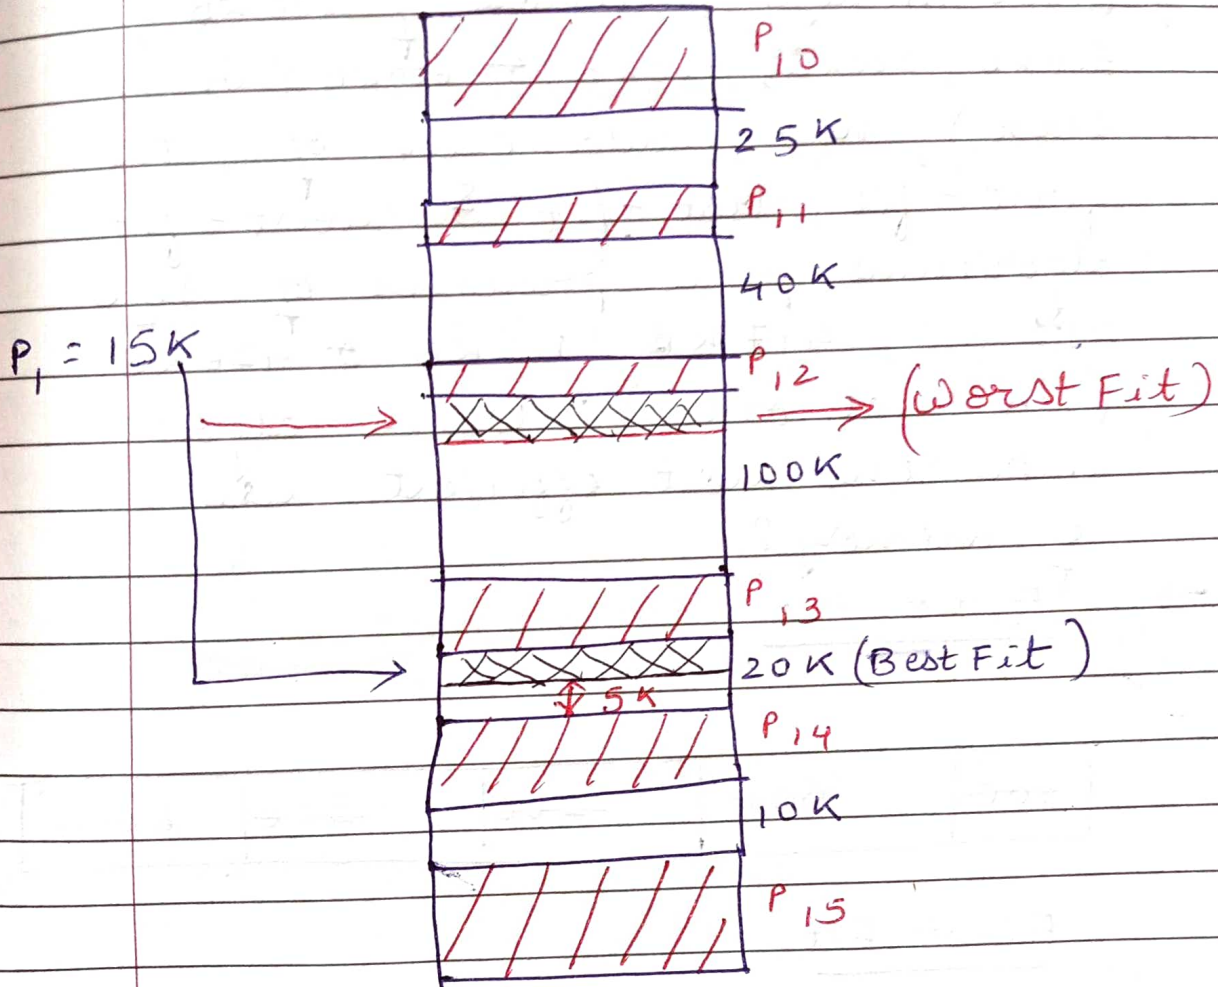 P10
25K
P11
40K
P1 = 15K
P12
(Worst Fit)
100K
P13
20K (Best Fit)
5K
P14
10K
P15